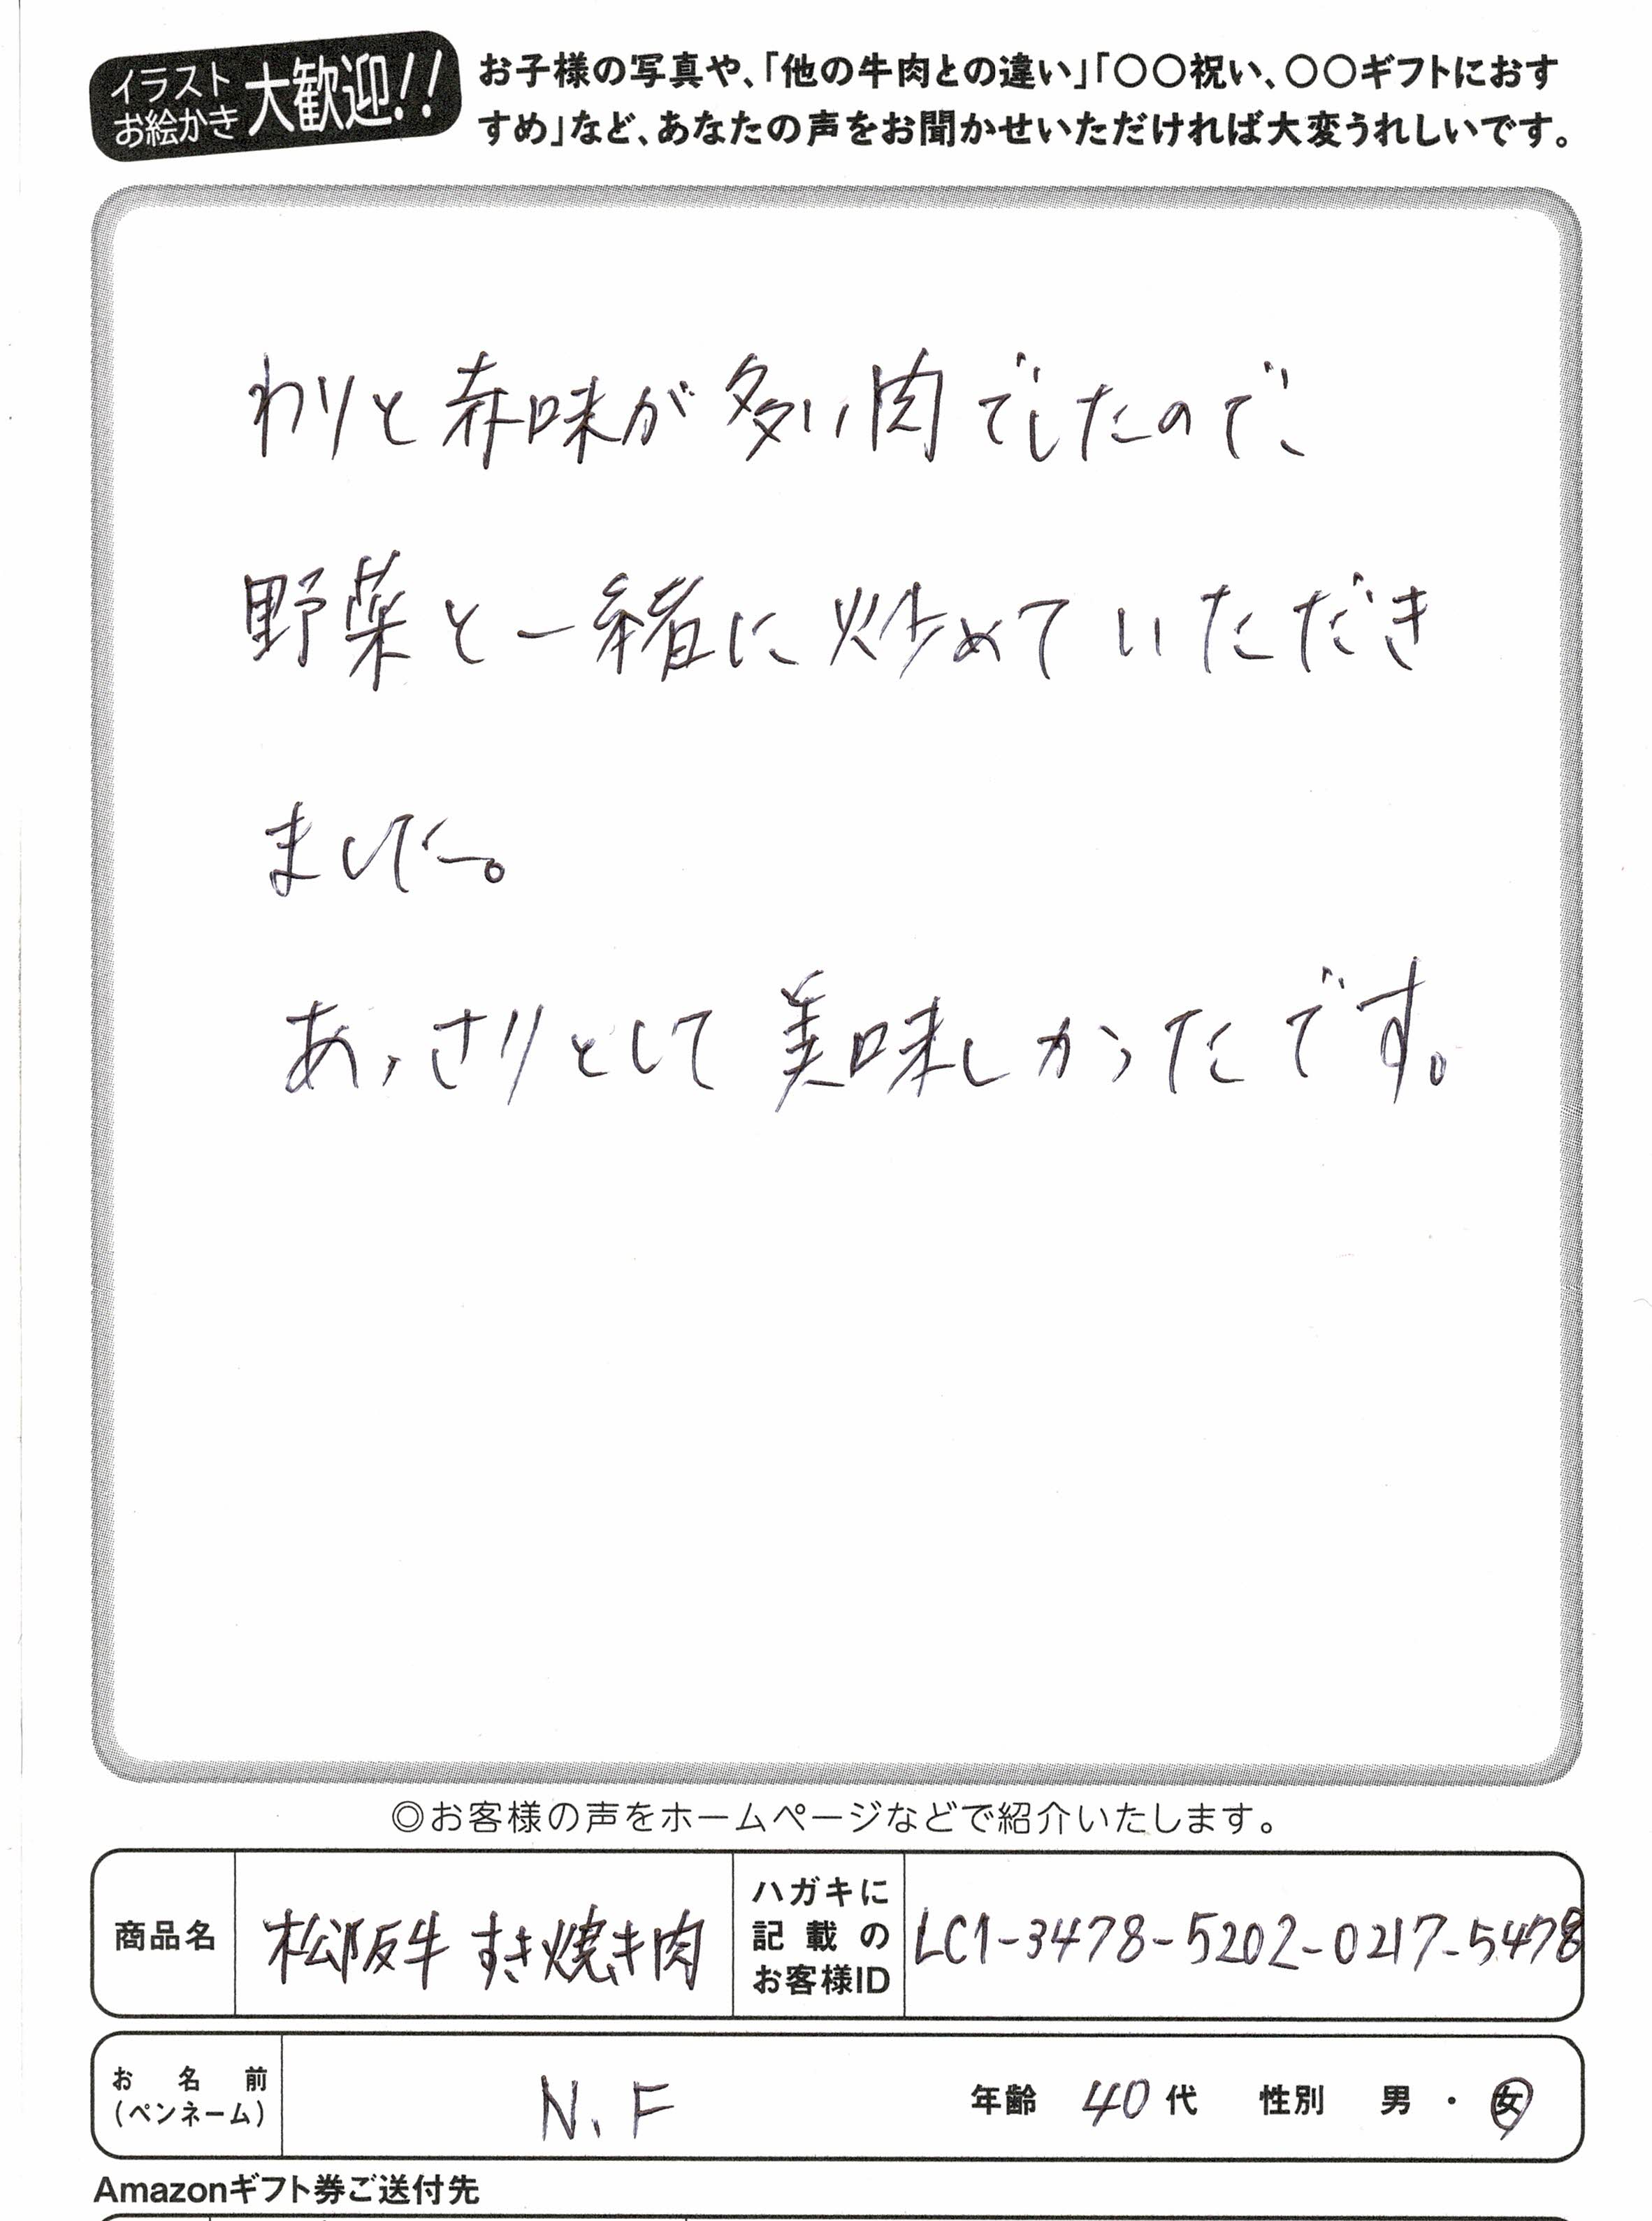 イラスト
お絵かき
大歓迎!!
お子様の写真や、「他の牛肉との違い」「〇〇祝い、〇〇ギフトにおす
すめ」など、あなたの声をお聞かせいただければ大変うれしいです。
わりと赤味が多い肉でしたので、
野菜と一緒に炒めていただき
ました。
あっさりとして美味しかったです。
◎お客様の声をホームページなどで紹介いたします。
商品名
松阪牛 すき焼き肉
ハガキに
記載の
お客様ID
LC1-3478-5202-0217-5478
お名前
(ペンネーム)
N.F
年齢 40代 性別 男・女
Amazonギフト券ご送付先